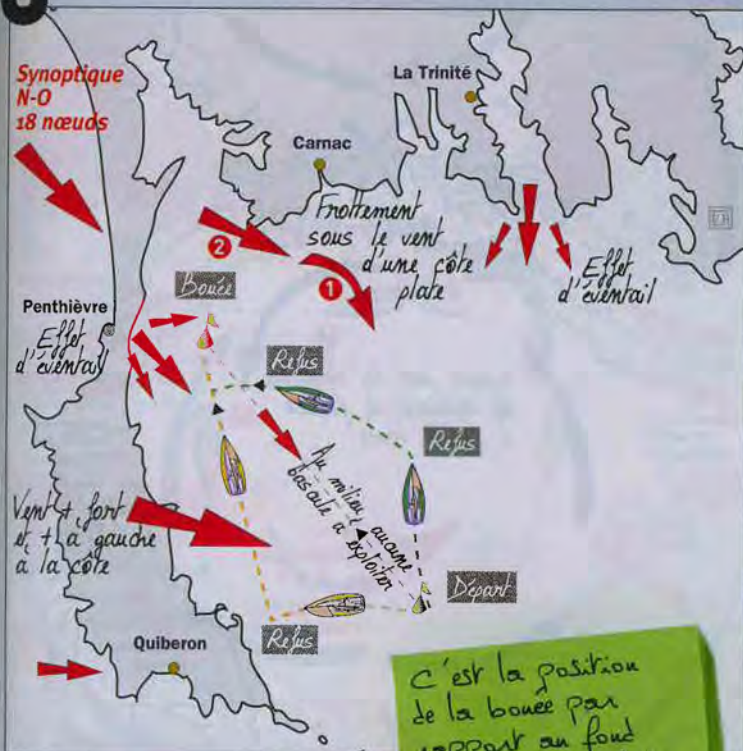 Synoptique
N-O
18 nœuds
La Trinité
Carnac
Frottement
sous le vent
d'une côte
plate
2
1
Effet
d'éventail
Bouée
Penthièvre
Effet
d'éventail
Refus
Refus
Au milieu, aucune
bascule à exploiter
Vent + fort
et + à gauche
à la côte
Départ
Refus
Quiberon
C'est la position
de la bouée par
rapport au fond